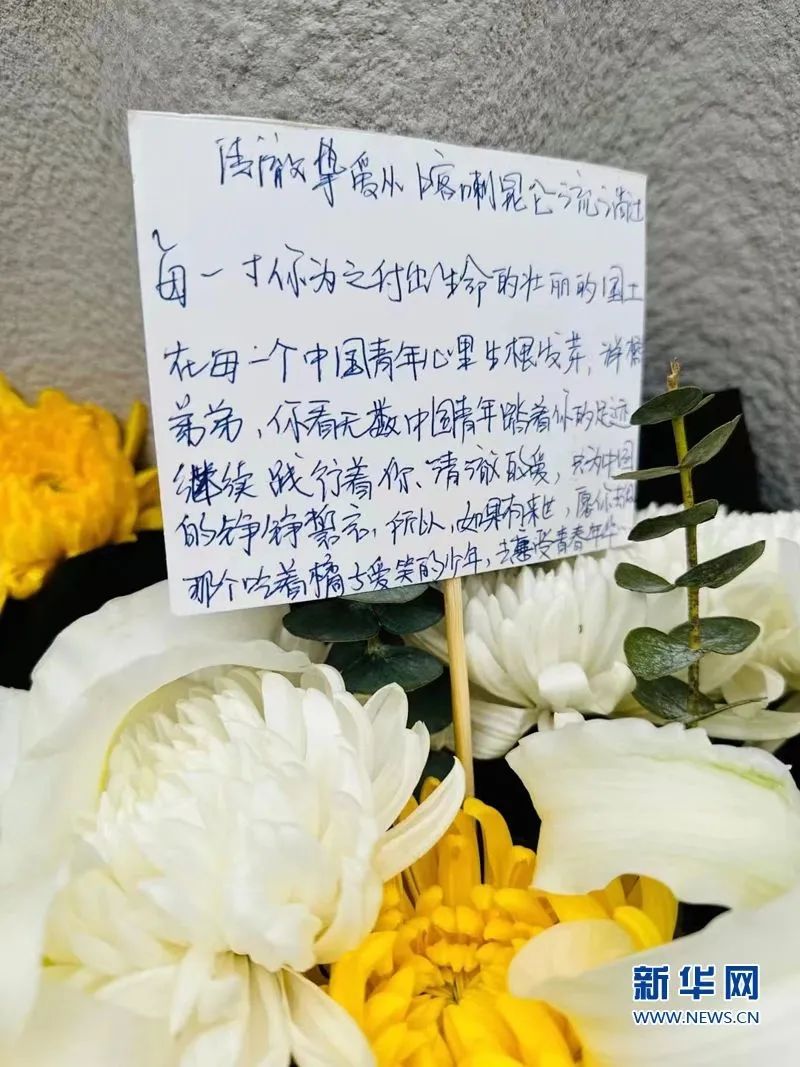 清澈挚爱从喀喇昆仑流淌过
每一寸你为之付出生命的壮丽的国土
在每一个中国青年心里生根发芽，祥榕
弟弟，你看无数中国青年踏着你的足迹
继续践行着你、清澈的爱，只为中国
的铮铮誓言，所以，如果有来世，愿你
那个吃着橘子爱笑的少年，去享受青春年华
新华网
WWW.NEWS.CN